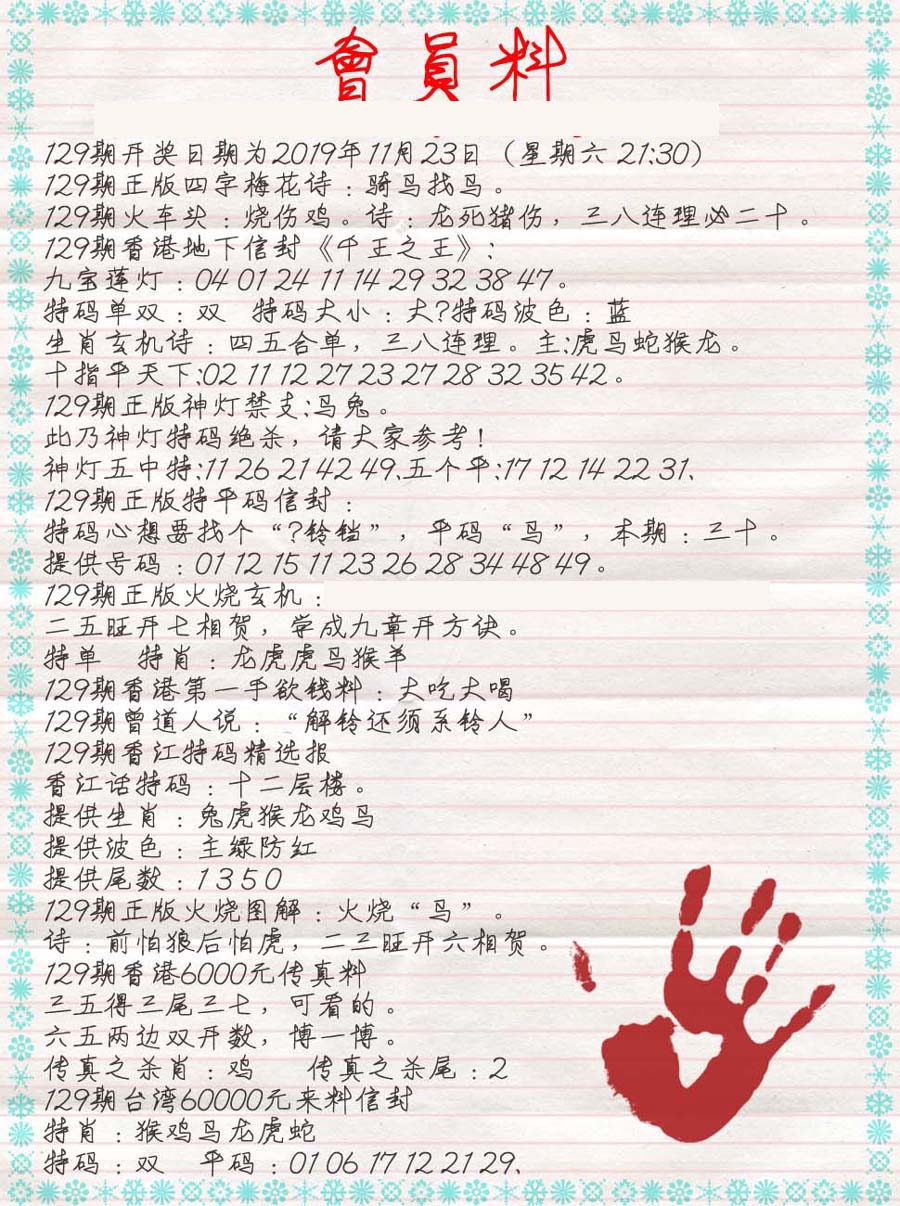 會員料
129期开奖日期为2019年11月23日（星期六 21:30）
129期正版四字梅花诗：骑鸟找鸟。
129期火车头：烧伤鸡。诗：龙死猪伤，三八连理必二十。
129期香港地下信封《千王之王》：
九宝莲灯：04 01 24 11 14 29 32 38 47。
特码单双：双 特码大小：大?特码波色：蓝
生肖玄机诗：四五合单，三八连理。主:虎鸟蛇猴龙。
十指平天下:02 11 12 27 23 27 28 32 35 42。
129期正版神灯禁支:鸟兔。
此乃神灯特码绝杀，请大家参考！
神灯五中特:11 26 21 42 49、五个平:17 12 14 22 31、
129期正版特平码信封：
特码心想要找个“?铃铛”，平码“鸟”，本期：三十。
提供号码：01 12 15 11 23 26 28 34 48 49。
129期正版火烧玄机：
二五旺开七相贺，学成九章开方诀。
特单 特肖：龙虎虎鸟猴羊
129期香港第一手欲钱料：大吃大喝
129期曾道人说：“解铃还须系铃人”
129期香江特码精选报
香江话特码：十二层楼。
提供生肖：兔虎猴龙鸡鸟
提供波色：主绿防红
提供尾数：1 3 5 0
129期正版火烧图解：火烧“鸟”。
诗：前怕狼后怕虎，二三旺开六相贺。
129期香港6000元传真料
三五得三尾三七，可看的。
六五两边双开数，博一博。
传真之杀肖：鸡 传真之杀尾：2
129期台湾60000元来料信封
特肖：猴鸡鸟龙虎蛇
特码：双 平码：01 06 17 12 21 29、